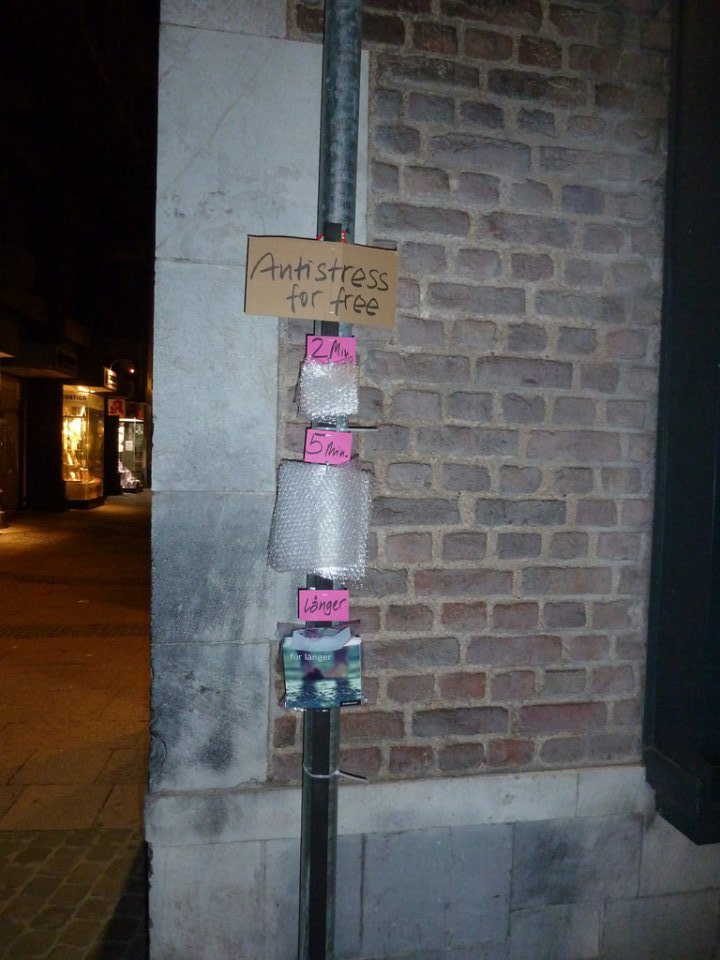 Antistress
for free
2 Min.
5 Min.
Länger
für länger